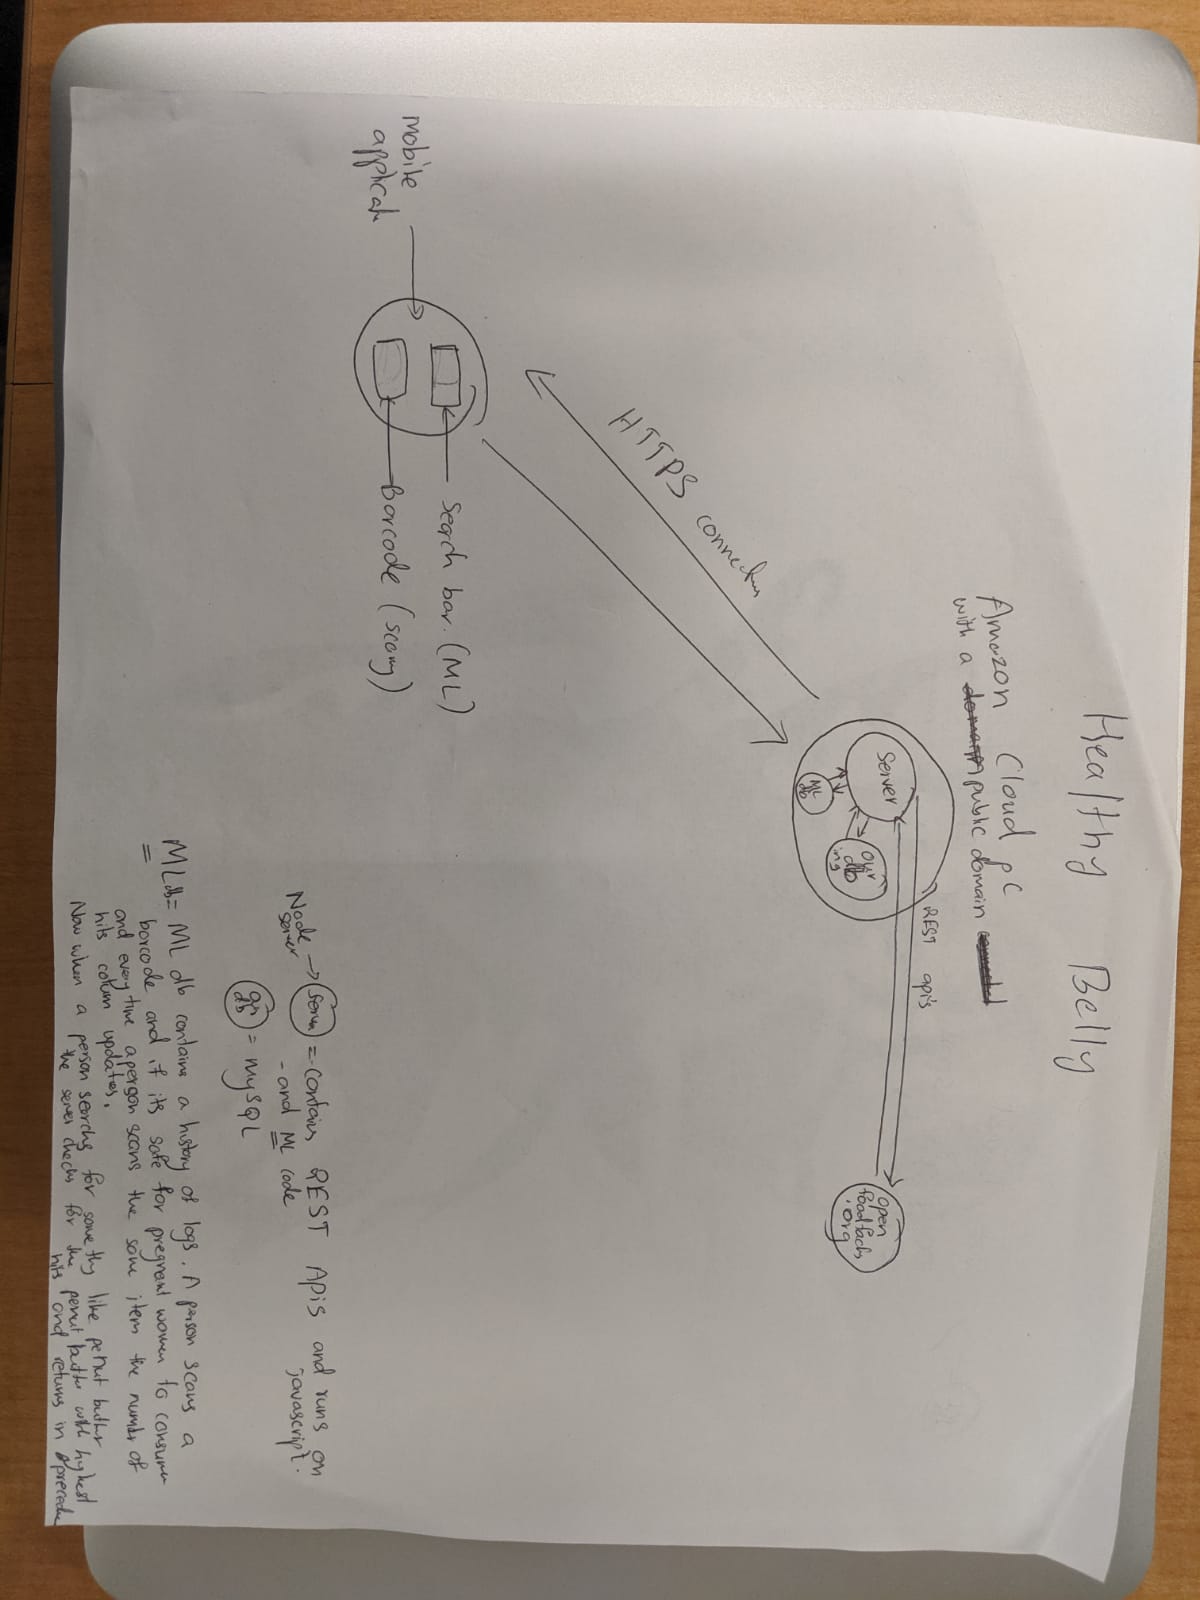 Healthy Belly
Amazon Cloud PC
with a public domain
REST apis
Server
ML
db
our
db
ing
open
foodfacts
.org
HTTPS connection
mobile
applicat
Search bar. (ML)
Barcode (scany)
Node → = - Contains REST APis and runs on
server
javascript.
- and ML code
our
db
= mySQL
MLdb = ML db contains a history of logs. A person scans a
barcode and if its safe for pregnant women to consume
and every time a person scans the same item the number of
hits column updates.
Now when a person searchs for like penut butter
the server checks for the penut butter with highest
hits and returns in